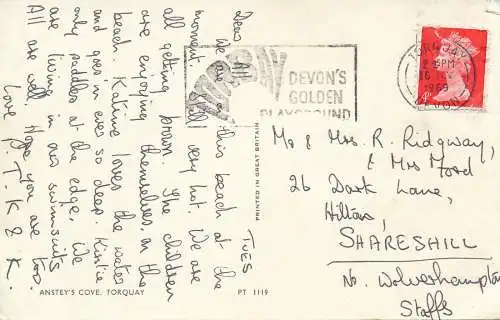 TUES
Dear All,
We are on this beach at the
moment. Still very hot. We are
all getting brown. The children
are enjoying themselves, on the
beach. Katrine loves the water
and goes in ever so deep. Kirstie
only paddles at the edge. We
are living in our swimsuits
All are well. Hope you are too
Love J. T. K & K.
ANSTEY'S COVE, TORQUAY
PT 1119
PRINTED IN GREAT BRITAIN
TORBAY
DEVON'S
GOLDEN
PLAYGROUND
TORBAY
PM
16
1969
DEVON
Mr & Mrs. R. Ridgway,
& Mrs Mord
26 Dark Lane,
Hilton,
SHARESHILL
Nr. Wolverhampton
Staffs